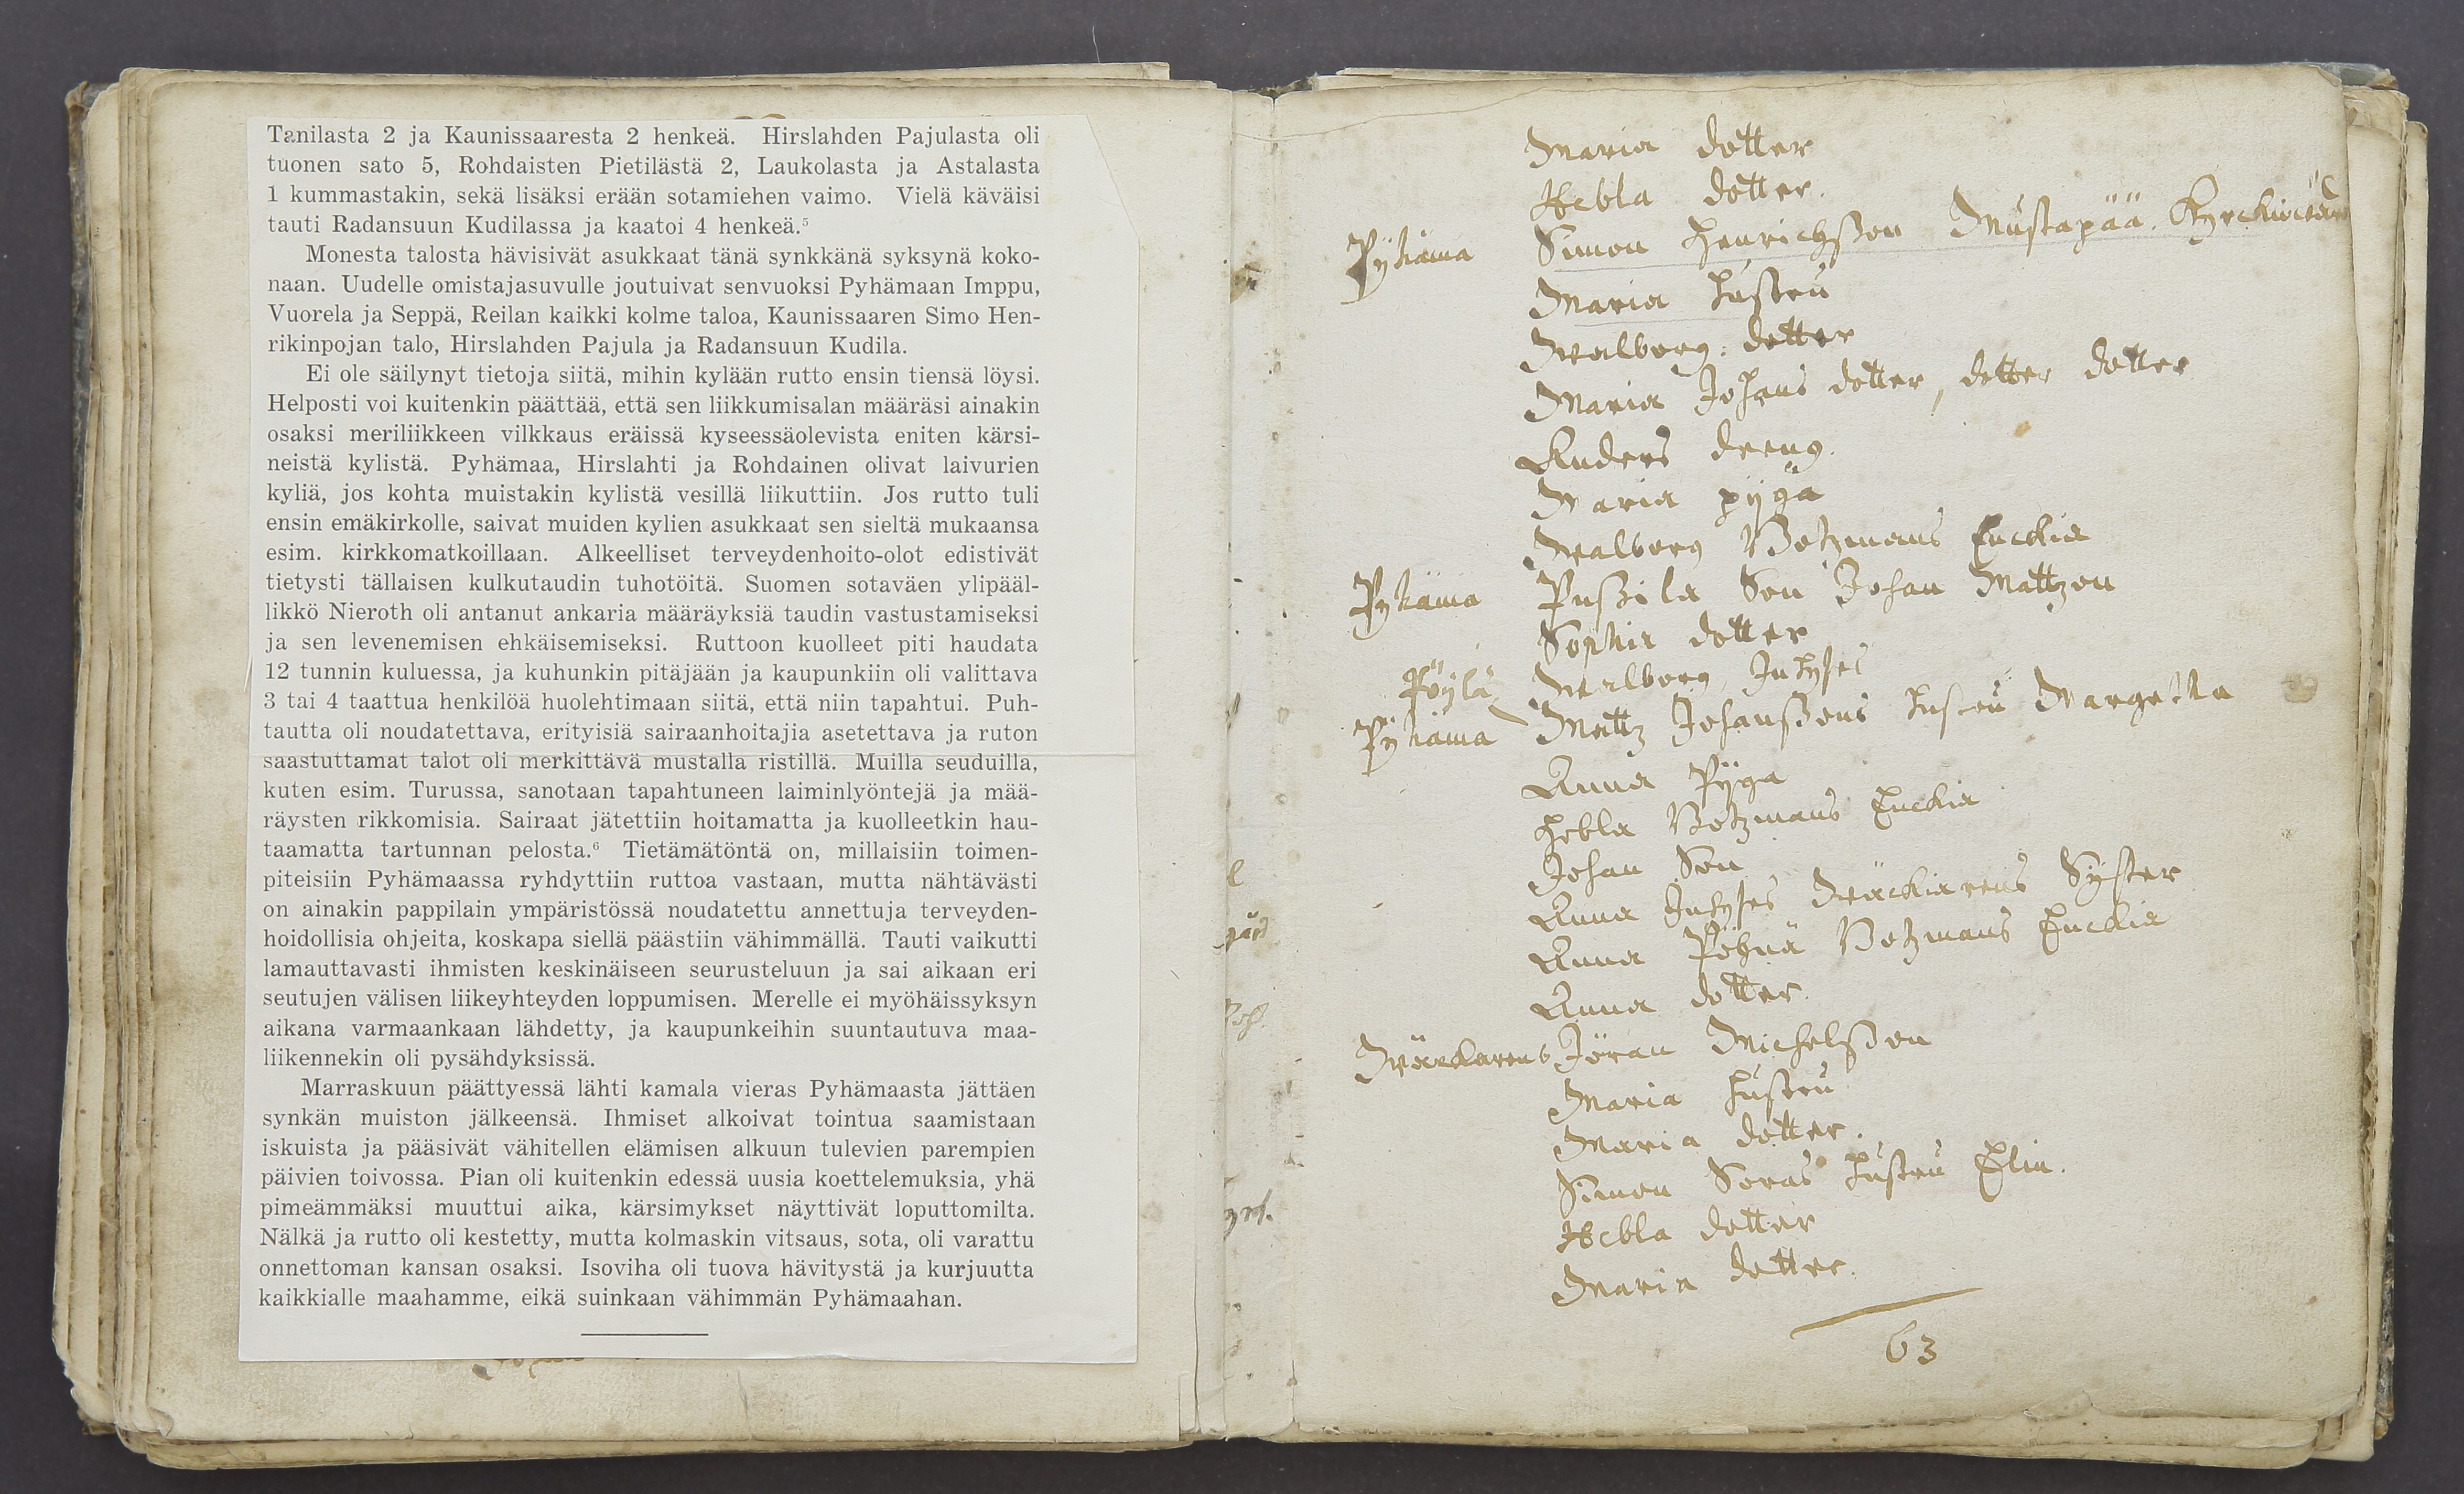 Tanilasta 2 ja Kaunissaaresta 2 henkeä. Hirslahden Pajulasta oli
tuonen sato 5, Rohdaisten Pietilästä 2, Laukolasta ja Astalasta
1 kummastakin, sekä lisäksi erään sotamiehen vaimo. Vielä käväisi
tauti Radansuun Kudilassa ja kaatoi 4 henkeä.⁵
Monesta talosta hävisivät asukkaat tänä synkkänä syksynä koko-
naan. Uudelle omistajasuvulle joutuivat senvuoksi Pyhämaan Imppu,
Vuorela ja Seppä, Reilan kaikki kolme taloa, Kaunissaaren Simo Hen-
rikinpojan talo, Hirslahden Pajula ja Radansuun Kudila.
Ei ole säilynyt tietoja siitä, mihin kylään rutto ensin tiensä löysi.
Helposti voi kuitenkin päättää, että sen liikkumisalan määräsi ainakin
osaksi meriliikkeen vilkkaus eräissä kyseessäolevista eniten kärsi-
neistä kylistä. Pyhämaa, Hirslahti ja Rohdainen olivat laivurien
kyliä, jos kohta muistakin kylistä vesillä liikuttiin. Jos rutto tuli
ensin emäkirkolle, saivat muiden kylien asukkaat sen sieltä mukaansa
esim. kirkkomatkoillaan. Alkeelliset terveydenhoito-olot edistivät
tietysti tällaisen kulkutaudin tuhotöitä. Suomen sotaväen ylipääl-
likkö Nieroth oli antanut ankaria määräyksiä taudin vastustamiseksi
ja sen levenemisen ehkäisemiseksi. Ruttoon kuolleet piti haudata
12 tunnin kuluessa, ja kuhunkin pitäjään ja kaupunkiin oli valittava
3 tai 4 taattua henkilöä huolehtimaan siitä, että niin tapahtui. Puh-
tautta oli noudatettava, erityisiä sairaanhoitajia asetettava ja ruton
saastuttamat talot oli merkittävä mustalla ristillä. Muilla seuduilla,
kuten esim. Turussa, sanotaan tapahtuneen laiminlyöntejä ja mää-
räysten rikkomisia. Sairaat jätettiin hoitamatta ja kuolleetkin hau-
taamatta tartunnan pelosta.⁶ Tietämätöntä on, millaisiin toimen-
piteisiin Pyhämaassa ryhdyttiin ruttoa vastaan, mutta nähtävästi
on ainakin pappilain ympäristössä noudatettu annettuja terveyden-
hoidollisia ohjeita, koskapa siellä päästiin vähimmällä. Tauti vaikutti
lamauttavasti ihmisten keskinäiseen seurusteluun ja sai aikaan eri
seutujen välisen liikeyhteyden loppumisen. Merelle ei myöhäissyksyn
aikana varmaankaan lähdetty, ja kaupunkeihin suuntautuva maa-
liikennekin oli pysähdyksissä.
Marraskuun päättyessä lähti kamala vieras Pyhämaasta jättäen
synkän muiston jälkeensä. Ihmiset alkoivat tointua saamistaan
iskuista ja pääsivät vähitellen elämisen alkuun tulevien parempien
päivien toivossa. Pian oli kuitenkin edessä uusia koettelemuksia, yhä
pimeämmäksi muuttui aika, kärsimykset näyttivät loputtomilta.
Nälkä ja rutto oli kestetty, mutta kolmaskin vitsaus, sota, oli varattu
onnettoman kansan osaksi. Isoviha oli tuova hävitystä ja kurjuutta
kaikkialle maahamme, eikä suinkaan vähimmän Pyhämaahan.
Maria dotter
Hebla dotter.
Pÿhäma Simon Henrichsson Mustapää.
Maria hustru
Walborg dotter
Maria Johans dotter, dotter dotter
Anders dreng.
Maria pÿga
Walborg Botzmans Enckia
Pyhäma Son Johan Mattzon
Sophia dotter
Walborg Inhyses
Pÿhäma Mattz Johanssons hustru Margetta
Anna Pÿga
Hebla Botzmans Enckia
Johan Son
Anna Inhyses Syster
Anna Botzmans Enckia
Anna dotter.
Jöran Michelsson
Maria hustru
Maria dotter.
Simon hustru Elin.
Hebla dotter
Maria dotter.
63